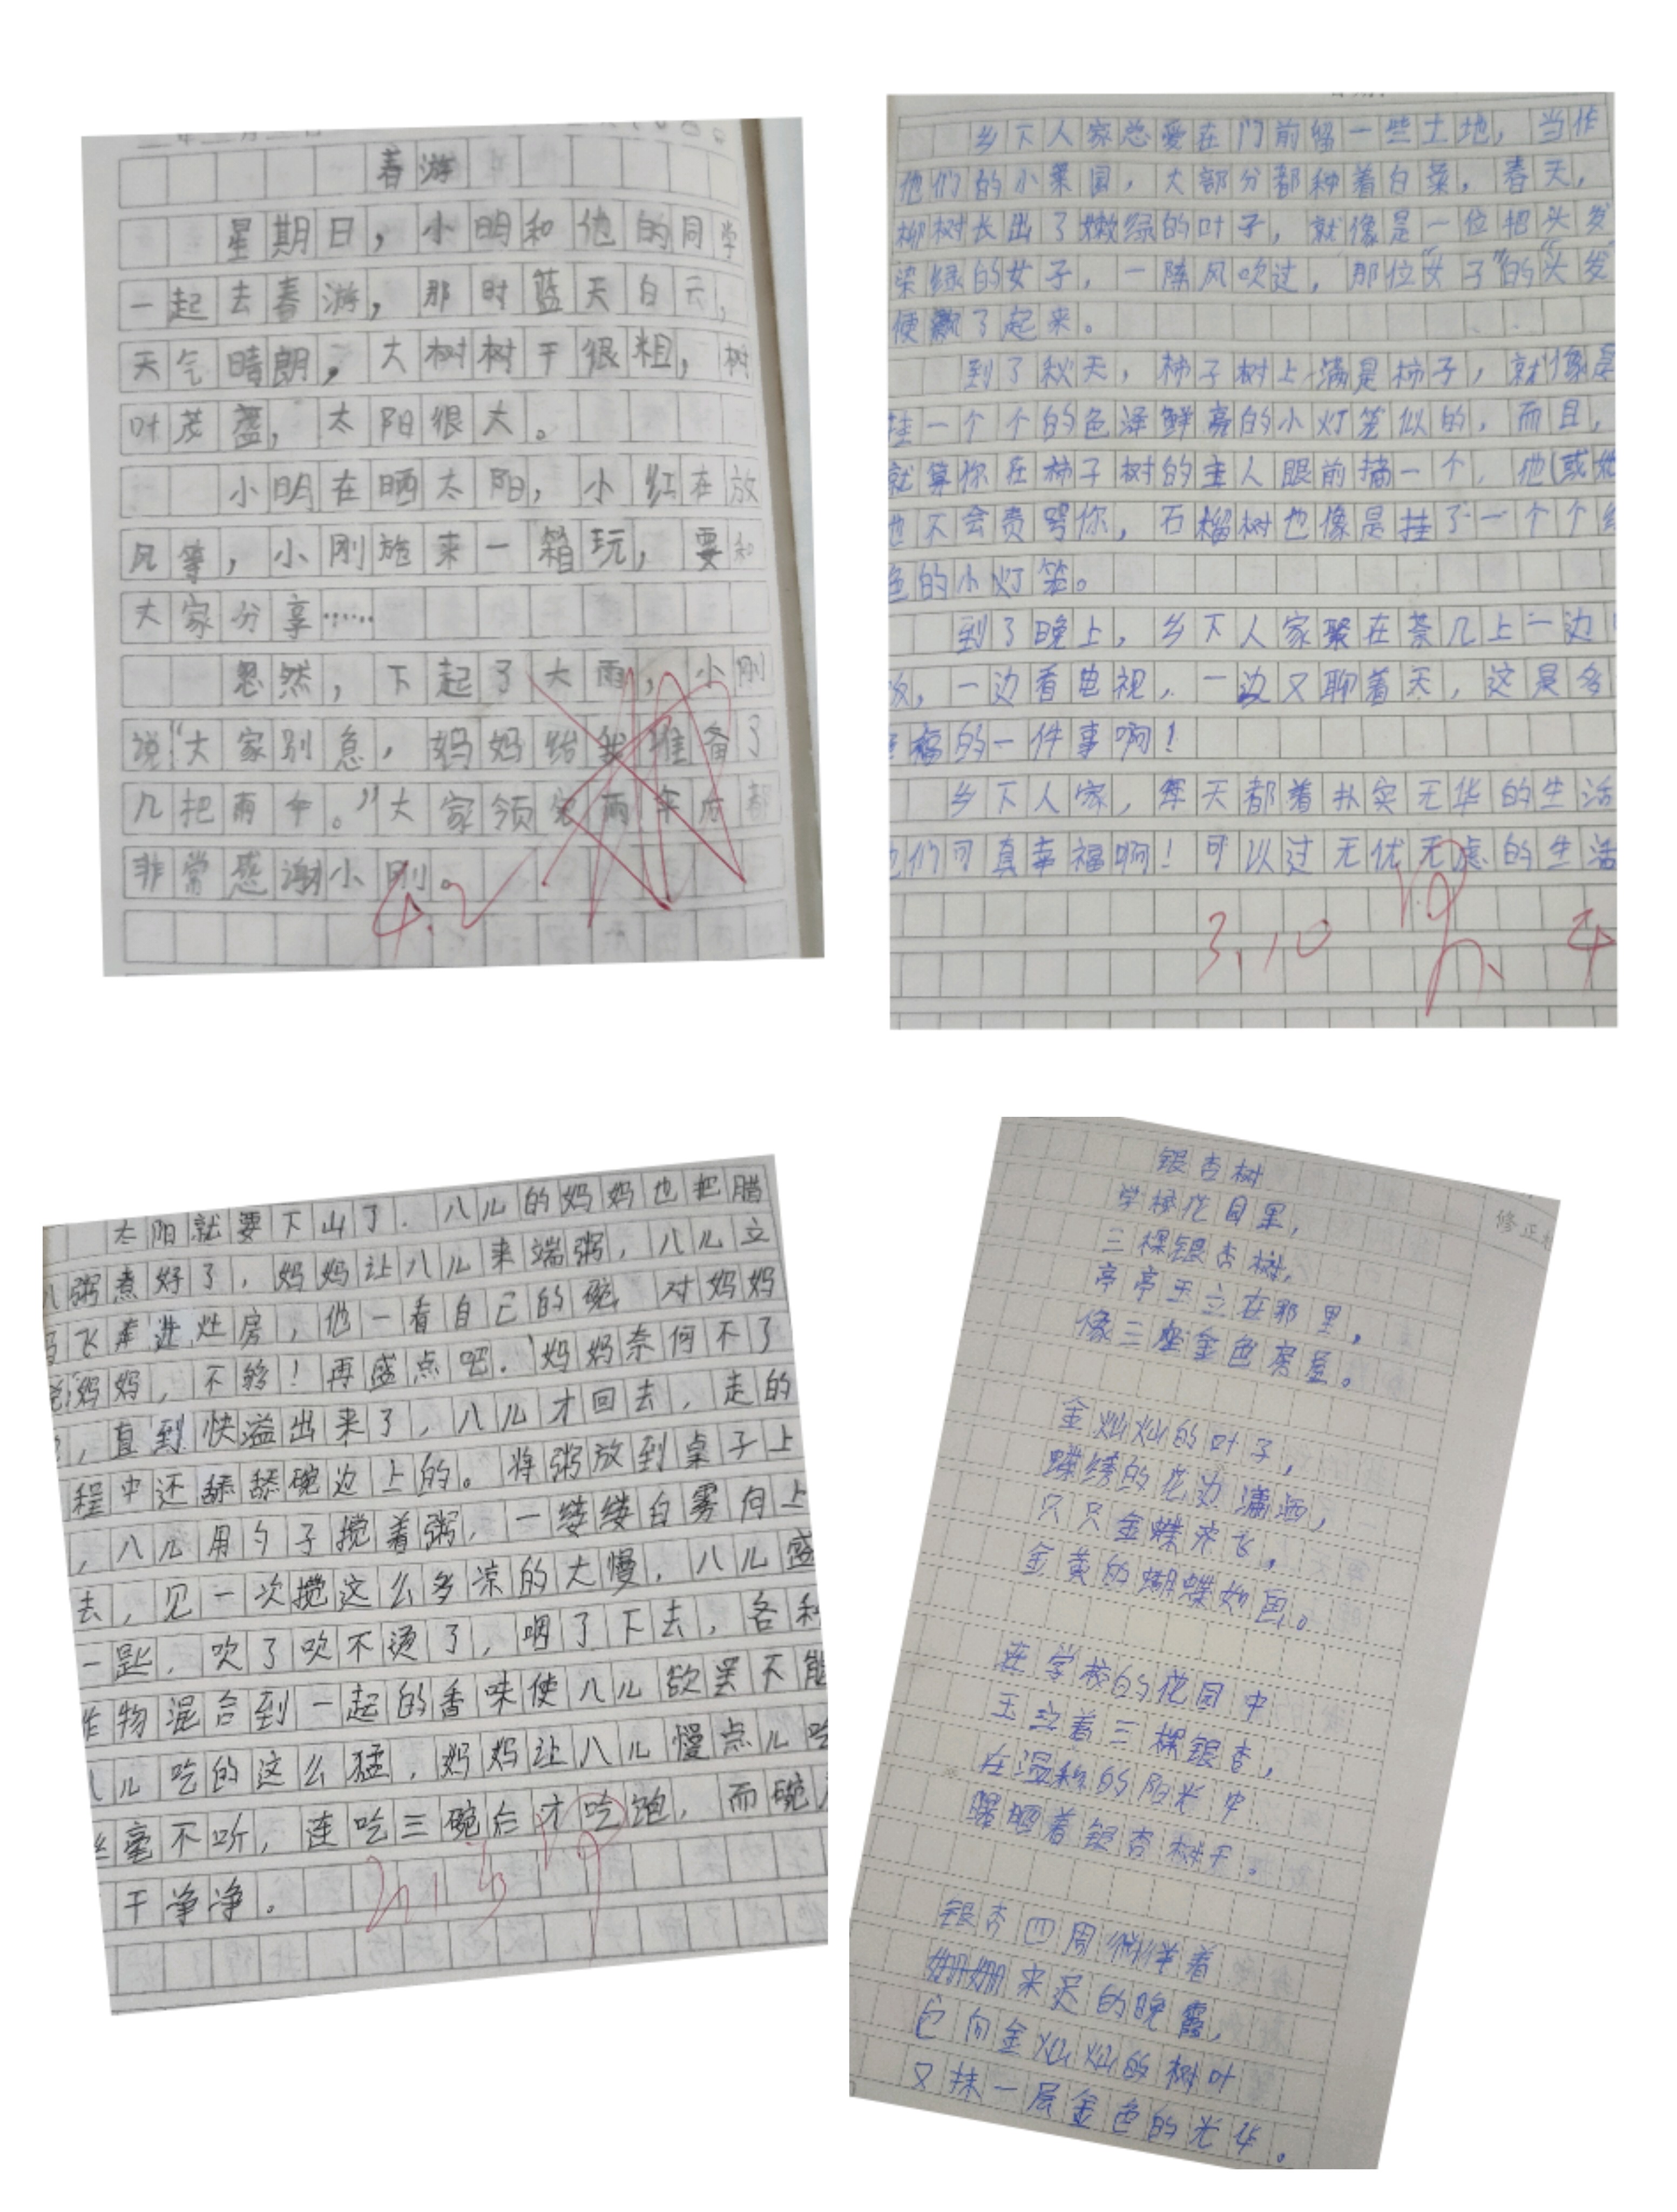 春游
星期日，小明和他的同学
一起去春游，那时蓝天白云，
天气晴朗，大树树干很粗，树
叶茂盛，太阳很大。
小明在晒太阳，小红在放
风筝，小刚拖来一箱玩，要和
大家分享……
忽然，下起了大雨，小刚
说：“大家别急，妈妈给我准备了
几把雨伞。”大家领完雨伞后都
非常感谢小刚。
4.2
乡下人家总爱在门前留一些土地，当作
他们的小菜园，大部分都种着白菜，春天，
柳树长出了嫩绿的叶子，就像是一位把头发
染绿的女子，一阵风吹过，那位“女子”的“头发”
便飘了起来。
到了秋天，柿子树上满是柿子，就像是
挂一个个的色泽鲜亮的小灯笼似的，而且，
就算你在柿子树的主人眼前摘一个，他(或她
也不会责骂你，石榴树也像是挂了一个个红
色的小灯笼。
到了晚上，乡下人家聚在茶几上一边
饭，一边看电视，一边又聊着天，这是多
幸福的一件事啊！
乡下人家，每天都着朴实无华的生活
他们可真幸福啊！可以过无忧无虑的生活
3.10
太阳就要下山了．八儿的妈妈也把腊
八粥煮好了，妈妈让八儿来端粥，八儿立
马飞奔进灶房，他一看自己的碗 对妈妈
说：妈妈，不够！再盛点吧．妈妈奈何不了
，直到快溢出来了，八儿才回去，走的
程中还舔舔碗边上的。将粥放到桌子上
，八儿用勺子搅着粥，一缕缕白雾向上
去，见一次搅这么多凉的太慢，八儿盛
一匙，吹了吹不烫了，咽了下去，各种
作物混合到一起的香味使八儿欲罢不能
八儿吃的这么猛，妈妈让八儿慢点儿吃
丝毫不听，连吃三碗后才吃饱，而碗
干净净。
修正
银杏树
学校花园里，
三棵银杏树，
亭亭玉立在那里，
像三座金色房屋。
金灿灿的叶子，
蝶绣的花边潇洒，
只只金蝶齐飞，
金黄的蝴蝶如画。
在学校的花园中
玉立着三棵银杏，
在温和的阳光中
曜晒着银杏树干。
银杏四周徜徉着
姗姗来迟的晚霞，
它向金灿灿的树叶
又抹一层金色的光华。